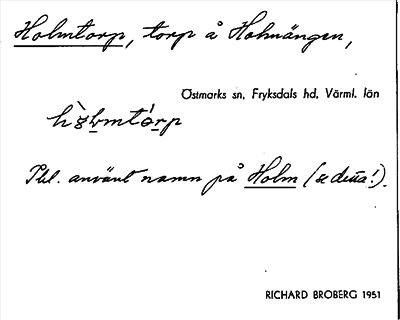 Holmtorp, torp å Holmängen,
Östmarks sn, Fryksdals hd, Värml. län
Tbl. använt namn på Holm (se detta!).
RICHARD BROBERG 1951